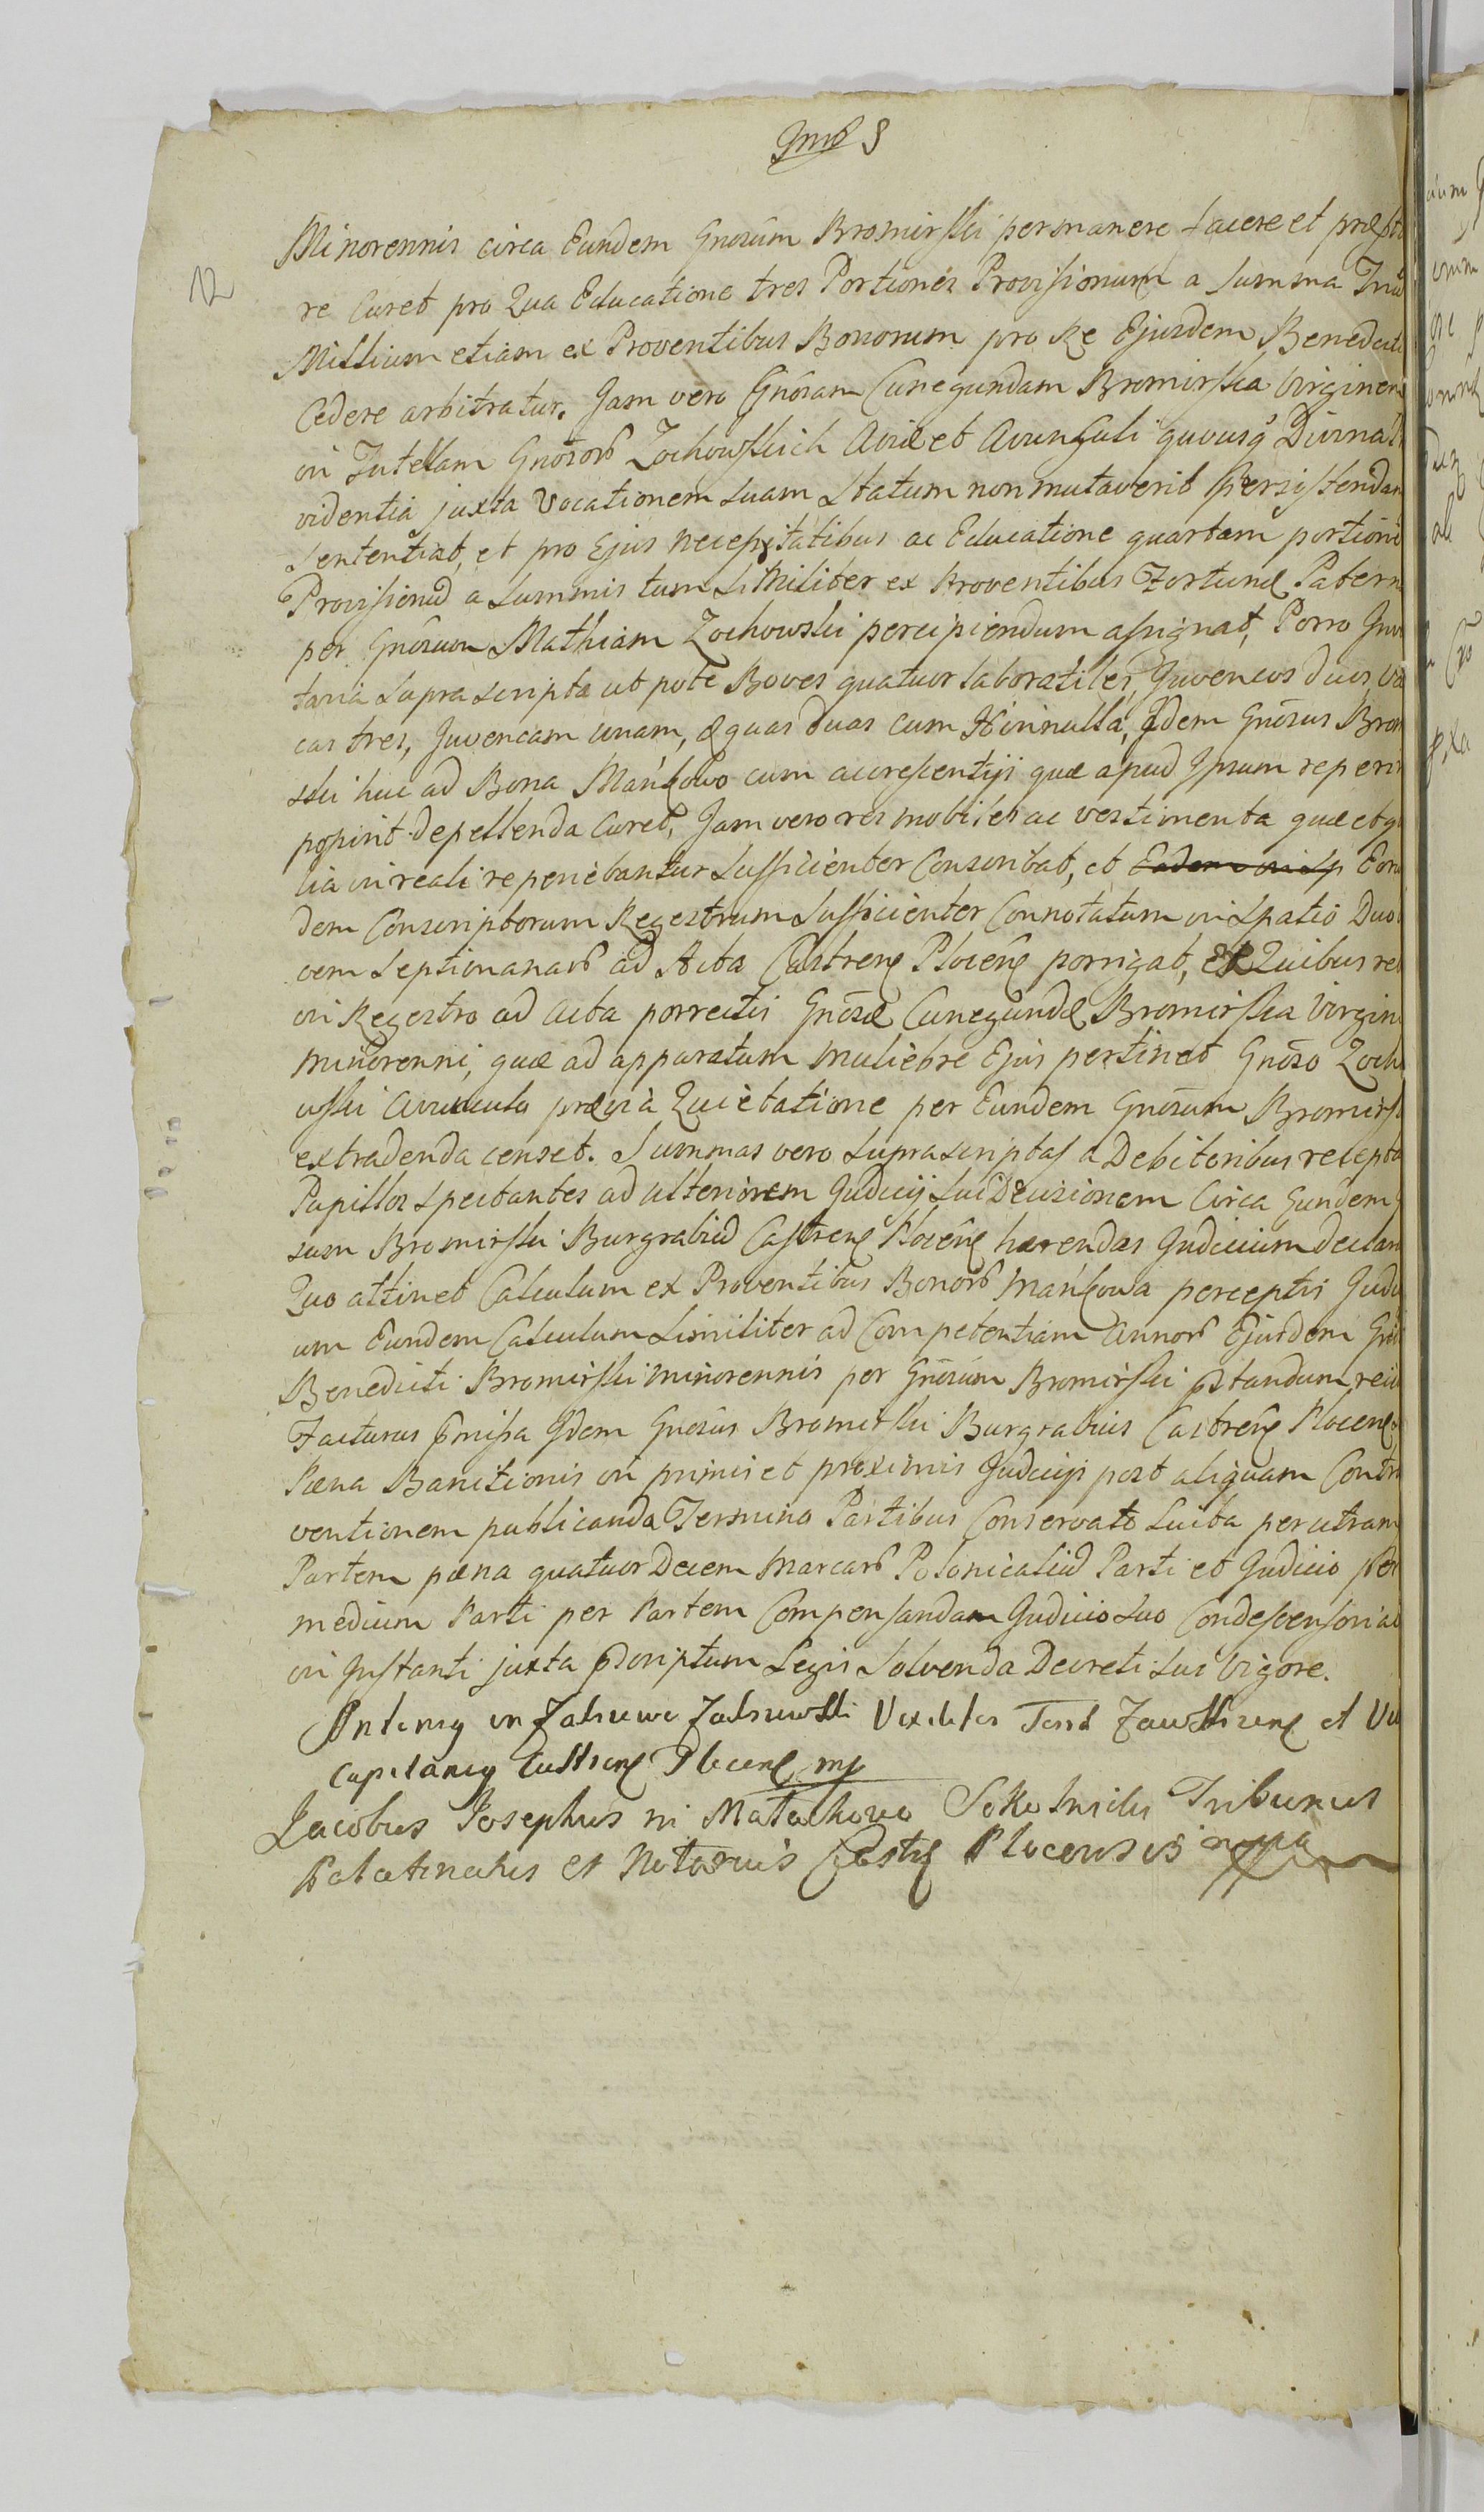 12
Minorennis circa Eundem Gnosum Bromirski permanere facere et præsta
re Curet pro Qua Educatione tres Portiones Provisionum a Summa
Millium etiam ex Proventibus Bonorum pro Re Ejusdem Benedicti
Cedere arbitratur. Jam vero Gnosam Cunegundam Bromirska Virginem
in Tutellam Gnosorum Zochowskich Aviæ et Avunculi quousq Divina
videntia juxta Vocationem suam Statum non mutaverit persistendam
Sententiat, et pro Ejus necessitatibus ac Educatione quartam portione
Provisionu a Summis tum Similiter ex Proventibus Fortunæ Paternæ
per Gnosum Mathiam Zochowski percipiendum assignat, Porro Inven
taria supra scripta ut pote Boves quatuor laboratiles, Juvencos duos, Vac
cas tres, Juvencam unam, Equas duas cum Hinnulla, Idem Gnosus Brom
ski huc ad Bona Mańkowo cum accrescentiji quæ apud Ipsum reperir
possint depellenda Curet, Jam vero res mobiles ac vestimenta quæ et
lia in reali reperiebantur Sufficienter Conscribat, et Eadem in Sp Eorun
dem Conscriptorum Regestrum Sufficienter Connotatum in Spatio Duo
rum Septimanarum ad Acta Castren Plocen porrigat, Ex Quibus
in Regestro ad Acta porrectis Gnosæ Cunegundæ Bromirska Virgini
minorenni, quæ ad apparatum muliebre Ejus pertinet Gnoso Zocho
wski Avunculo prævia Quietatione per Eundem Gnosum Bromirs
extradenda censet. Summas vero Suprascriptas a Debitoribus recepta
Pupillos Spectantes ad ulteriorem Judicij Sui Decisionem Circa Eundem
sum Bromirski Burgrabiu Castren Plocen hærendas Judicium declar
Quo attinet Calculum ex Proventibus Bonorum Mańkowa perceptis Judi
um Eundem Calculum Similiter ad Competentiam Annorum Ejusdem
Benedicti Bromirski minorennis per Gnosum Bromirski pstandum
Facturus pmissa Idem Gnosus Bromirski Burgrabius Castren Plocen
Pæna Banitionis in primis et proximis Judicijs post aliquam Contra
ventionem publicanda Termino Partibus Conservato Luita per utram
Partem pæna quatuor Decem Marcarum Polonicaliu Parti et Judicio per
medium Parti per Partem Compensandam Judicio Suo Condescensoriali
in Instanti juxta pscriptum Legis Solvenda Decreti Sui Vigore.
Capitaneg Castren Plocen mp
Jacobus Josephus in Małachowo Sokolnicki Tribunus
Palatinatus et Notarius Castr Plocensis mppa